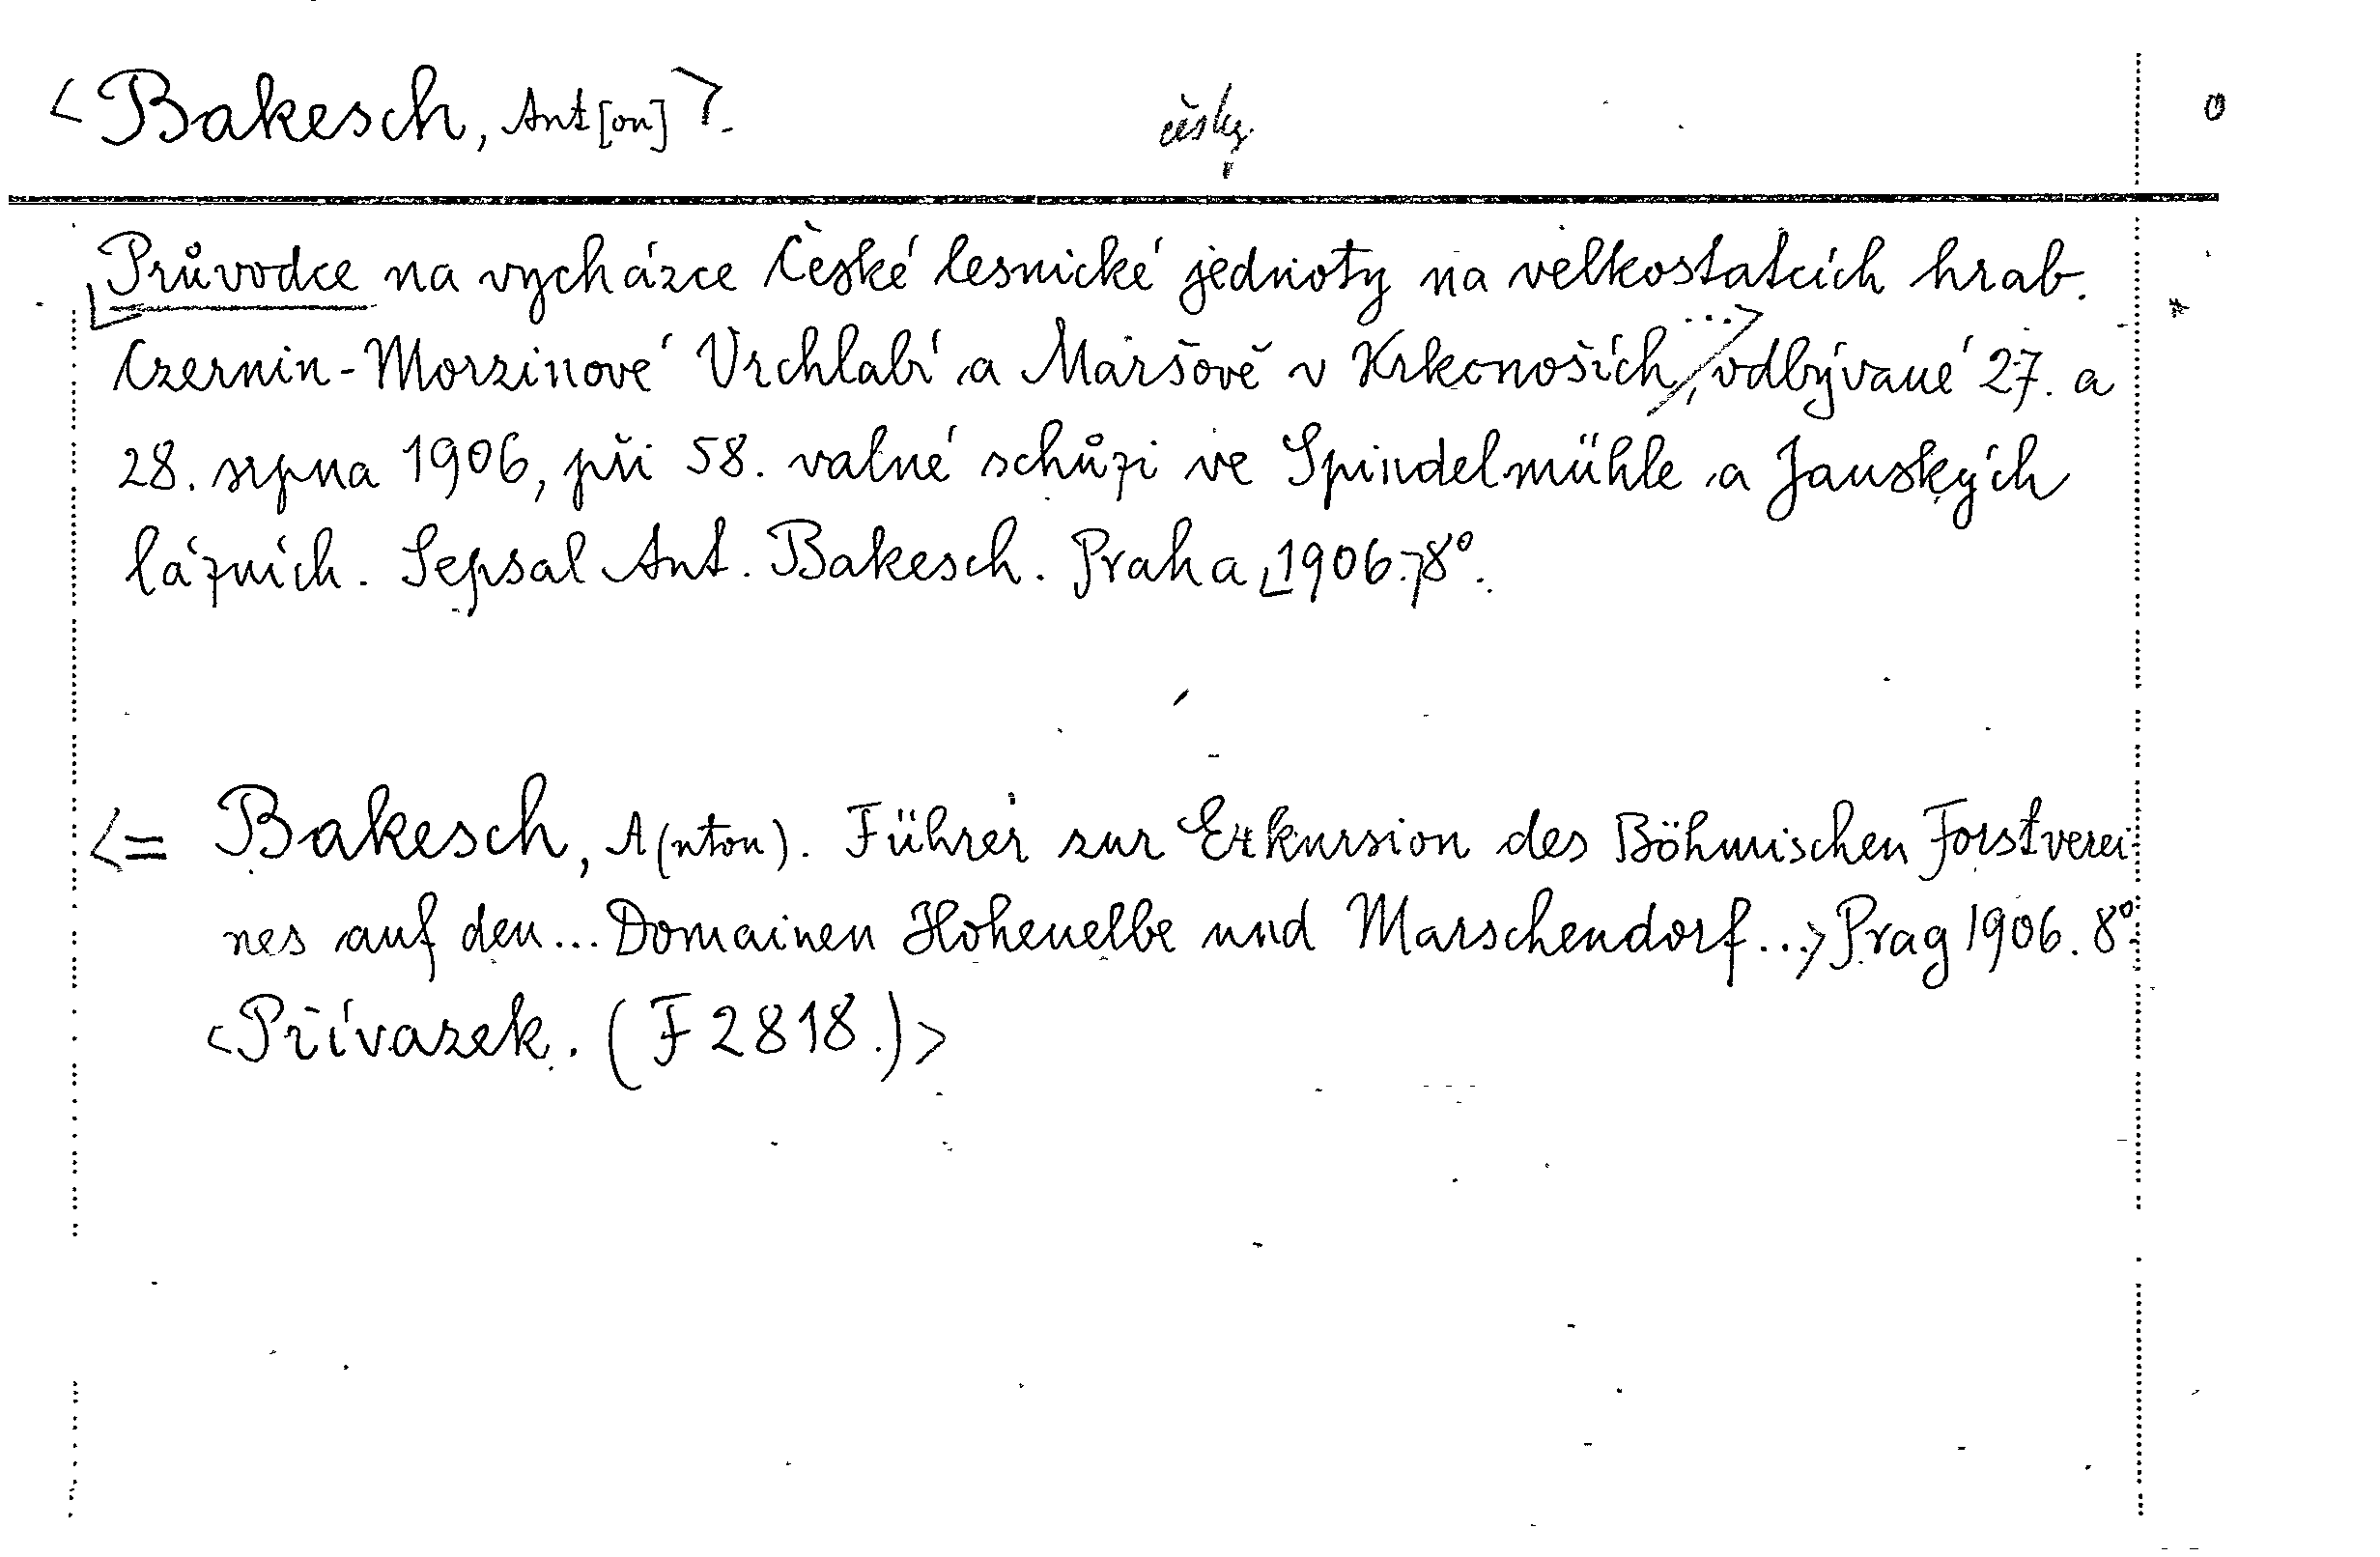 <Bakesch, Ant[on]>. česky. 0
<Průvodce na vycházce České lesnické jednoty na velkostatcích hrab.
Czernin-Morzinové Vrchlabí a Maršově v Krkonoších, ...> odbývané 27. a
28. srpna 1906, při 58. valné schůzi ve Spindelmühle a Janských
lázních. Sepsal Ant. Bakesch. Praha <1906.> 8°.
<= Bakesch, A(nton). Führer zur Exkursion des Böhmischen Forstverei-
nes auf den... Domainen Hohenelbe und Marschendorf...> Prag 1906. 8°.
<Přívazek. (F 2818.)>